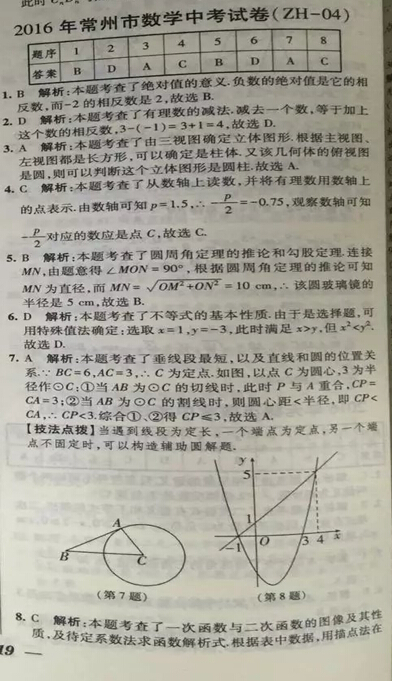 2016年常州市数学中考试卷(ZH-04)
题序 1 2 3 4 5 6 7 8
答案 B D A C B D A C
1. B 解析:本题考查了绝对值的意义.负数的绝对值是它的相
反数,而-2的相反数是2,故选B.
2. D 解析:本题考查了有理数的减法.减去一个数,等于加上
这个数的相反数,3-(-1)=3+1=4,故选D.
3. A 解析:本题考查了由三视图确定立体图形.根据主视图、
左视图都是长方形,可以确定是柱体.又该几何体的俯视图
是圆,则可以判断这个立体图形是圆柱.故选A.
4. C 解析:本题考查了从数轴上读数,并将有理数用数轴上
的点表示.由数轴可知p=1.5,∴-p/2=-0.75,观察数轴可知
-p/2对应的数应是点C,故选C.
5. B 解析:本题考查了圆周角定理的推论和勾股定理.连接
MN,由题意得∠MON=90°,根据圆周角定理的推论可知
MN为直径,而MN=√OM²+ON²=10 cm,∴该圆玻璃镜的
半径是5 cm,故选B.
6. D 解析:本题考查了不等式的基本性质.由于是选择题,可
用特殊值法确定:选取x=1,y=-3,此时满足x>y,但x²<y².
故选D.
7. A 解析:本题考查了垂线段最短,以及直线和圆的位置关
系.∵BC=6,AC=3,∴C为定点.如图,以点C为圆心,3为半
径作⊙C:①当AB为⊙C的切线时,此时P与A重合,CP=
CA=3;②当AB为⊙C的割线时,则圆心距<半径,即CP<
CA,∴CP<3.综合①、②得CP≤3,故选A.
【技法点拨】当遇到线段为定长,一个端点为定点,另一个端
点不固定时,可以构造辅助圆解题.
A
B
C
(第7题)
y
5
1
-1 O 3 4 x
(第8题)
8. C 解析:本题考查了一次函数与二次函数的图像及其性
质,及待定系数法求函数解析式.根据表中数据,用描点法在
19